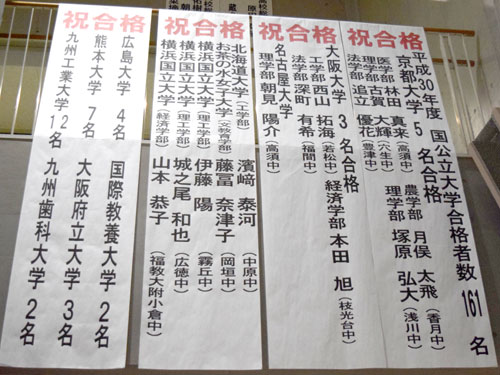 祝合格
平成30年度 国公立大学合格者数 161 名
京都大学 5 名合格
医学部 林田 真来(高須中) 農学部 月俣 太飛(香月中)
理学部 古賀 大輝(穴生中) 理学部 塚原 弘大(浅川中)
法学部 追立 優花(豊津中)
祝合格
大阪大学 3 名合格
工学部 西山 拓海(若松中) 経済学部 本田 旭(枝光台中)
法学部 深町 有希(福間中)
名古屋大学
理学部 朝見 陽介(高須中)
祝合格
北海道大学(工学部) 濱﨑 泰河(中原中)
お茶の水女子大学(文教育学部) 藤冨 奈津子(岡垣中)
横浜国立大学(理工学部) 伊藤 陽(霧丘中)
横浜国立大学(理工学部) 城之尾 和也(広徳中)
横浜国立大学(経済学部) 山本 恭子(福教大附小倉中)
祝合格
広島大学 4名 国際教養大学 2名
熊本大学 7名 大阪府立大学 3名
九州工業大学 12名 九州歯科大学 2名